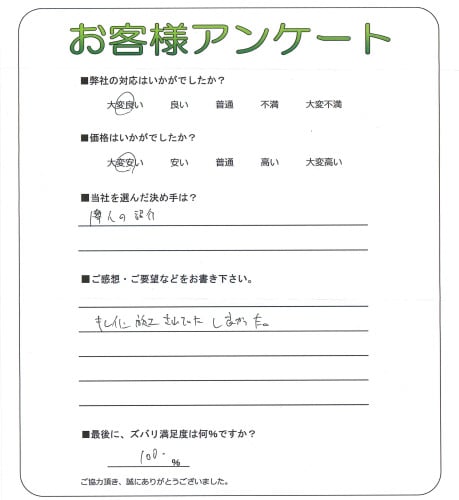 お客様アンケート
■弊社の対応はいかがでしたか？
大変良い 良い 普通 不満 大変不満
■価格はいかがでしたか？
大変安い 安い 普通 高い 大変高い
■当社を選んだ決め手は？
人の紹介
■ご感想・ご要望などをお書き下さい。
キレイに施工
■最後に、ズバリ満足度は何％ですか？
100 %
ご協力頂き、誠にありがとうございました。